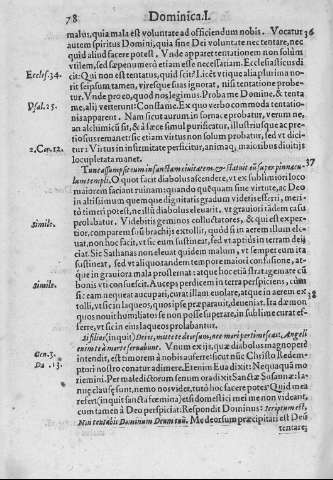 78 Dominica. I.
malus, quia mala est voluntas ad officiendum nobis. Vocatur 36
autem spiritus Domini, quia sine Dei voluntate nec tentare, nec
quid aliud facere potest. Vnde apparet tentationem non solùm
vtilem, sed sæpenumerò etiam esse necessariam. Ecclesiasticus di
Eccles. 34. cit: Qui non est tentatus, quid scit? Licèt vtique alia plurima no-
rit seipsum tamen, viresque suas ignorat, nisi tentatione probe-
tur. Vnde pro eo, quod nos legimus: Proba me Domine, & tenta
Psal. 25. me, alij verterunt: Conflame. Ex quo verbo commoda tentatio-
nis apparet. Nam sicut aurum in fornace probatur, verum ne,
an alchimicũ sit, & à fæce simul purificatur, illustriusque ac pre-
tiosius remanet: sic etiam virtus non solum probatur, sed vt dici-
2. Cor. 12. tur: Virtus in infirmitate perficitur, animaq́, maioribus diuitijs
locupletata manet.
Tunc assumpsit eum in sanctam ciuitatem, & statuit eũ super pinnacu- 37
lum templi. O quot facit diabolus ascendere, vt ex sublimiori loco
maiorem faciant ruinam: quando quẽquam sine virtute, ac Deo
in altissimum quemque dignitatis gradum videris efferri, meri-
tò timeri potest, ne illũ diabolus eleuarit, vt grauiori tãdem casu
Simile. probatur. Videbitis geminos colluctatores, & qui est exper-
tior, comparem suũ brachijs extollit, quòd si in aerem illum ele-
uat, non hoc facit, vt sic eum sustineat, sed vt aptius in terram deij
ciat. Sic Sathanas non eleuat quidem malum, vt semper eum ita
sustineat, sed vt aliquotandem tempore maiori confusione, at-
que in grauiora mala prosternat: atque hoc etiã stratagemate cũ
Simile. bonis vti consueuit. Auceps perdicem in terra perspiciens, cùm
si eam nequeat aucupari, curat illam euolare, atque in aerem ex 38
tolli, vt sic in laqueos, quos ipse præparauit, deueniat. Ita dæmon
quos nouit humiliatos se non posse superare, in sublime curat ef-
ferre, vt sic in eius laqueos prolabantur.
Si filius (inquit) Dei es, mitte te deorsum, nec mori pertimescas, Angeli
enim te à morte seruabunt. Vnum ex ijs, quæ diabolus magnopere
Gen. 3. intendit, est timorem à nobis auferre: sicut nũc Christo Redem-
ptori nostro conatur adimere. Etenim Eua dixit: Nequaquã mo
Da. 13. riemini. Per maledictorum senum ora dixit Sanctæ Susannæ: Ia-
nuæ clausę sunt, nemo nos videt, tutò hoc facere potes: Quid mea
refert (inquit sancta fœmina) etsi domestici mei me non videant,
cum tamen à Deo perspiciar: Respondit Dominus: Scriptum est,
Non tentabis Dominum Deum tuũ. Me deorsum præcipitari est Deũ
tentare,